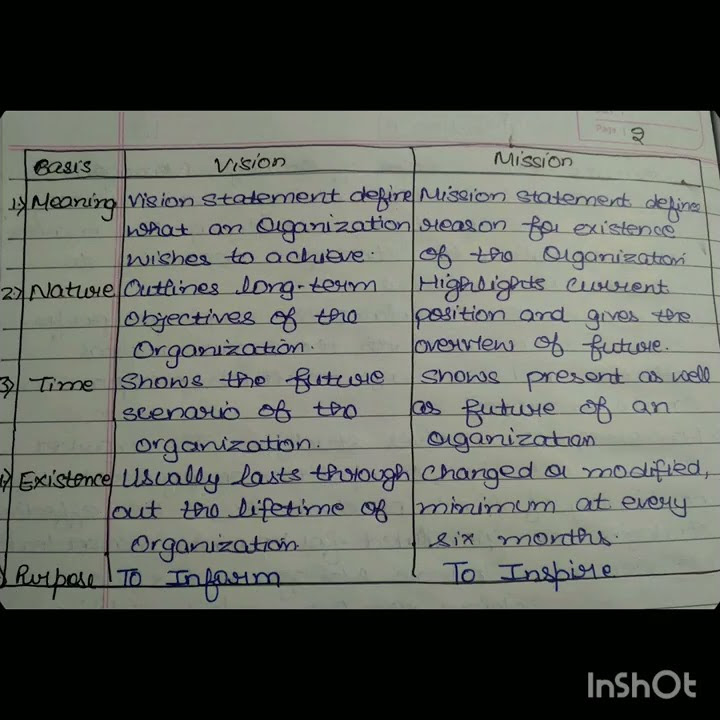 Page: 2
Basis Vision Mission
1) Meaning Vision statement define Mission statement defines
what an Organization reason for existence
wishes to achieve. of the Organization
2) Nature Outlines long-term Highlights current
Objectives of the position and gives the
Organization. overview of future.
3) Time Shows the future shows present as well
scenario of the as future of an
organization. organization
4) Existence Usually lasts through changed or modified,
out the lifetime of minimum at every
Organization six months.
) Purpose To Inform To Inspire
InShOt